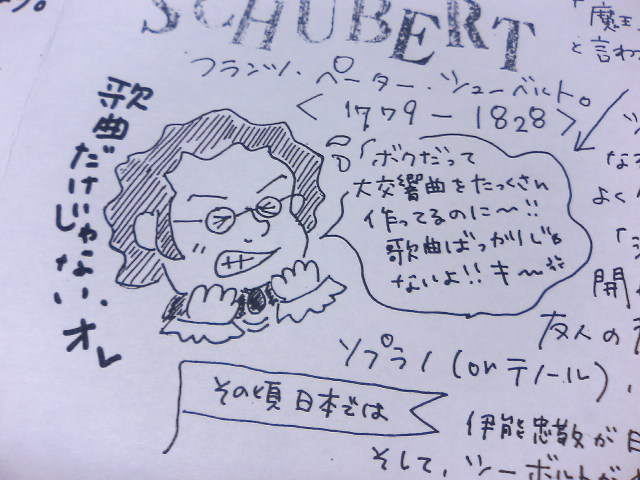 SCHUBERT
フランツ・ペーター・シューベルト。
<1779-1828>
歌曲だけじゃない、オレ
「ボクだって
大交響曲をたっくさん
作ってるのに〜!!
歌曲ばっかりじゃ
ないよ!!キ〜
「魔王
と言わ
なる
よく
開
友人の
ソプラノ(orテノール)、
その頃日本では
伊能忠敬が日
そして、シーボルトが